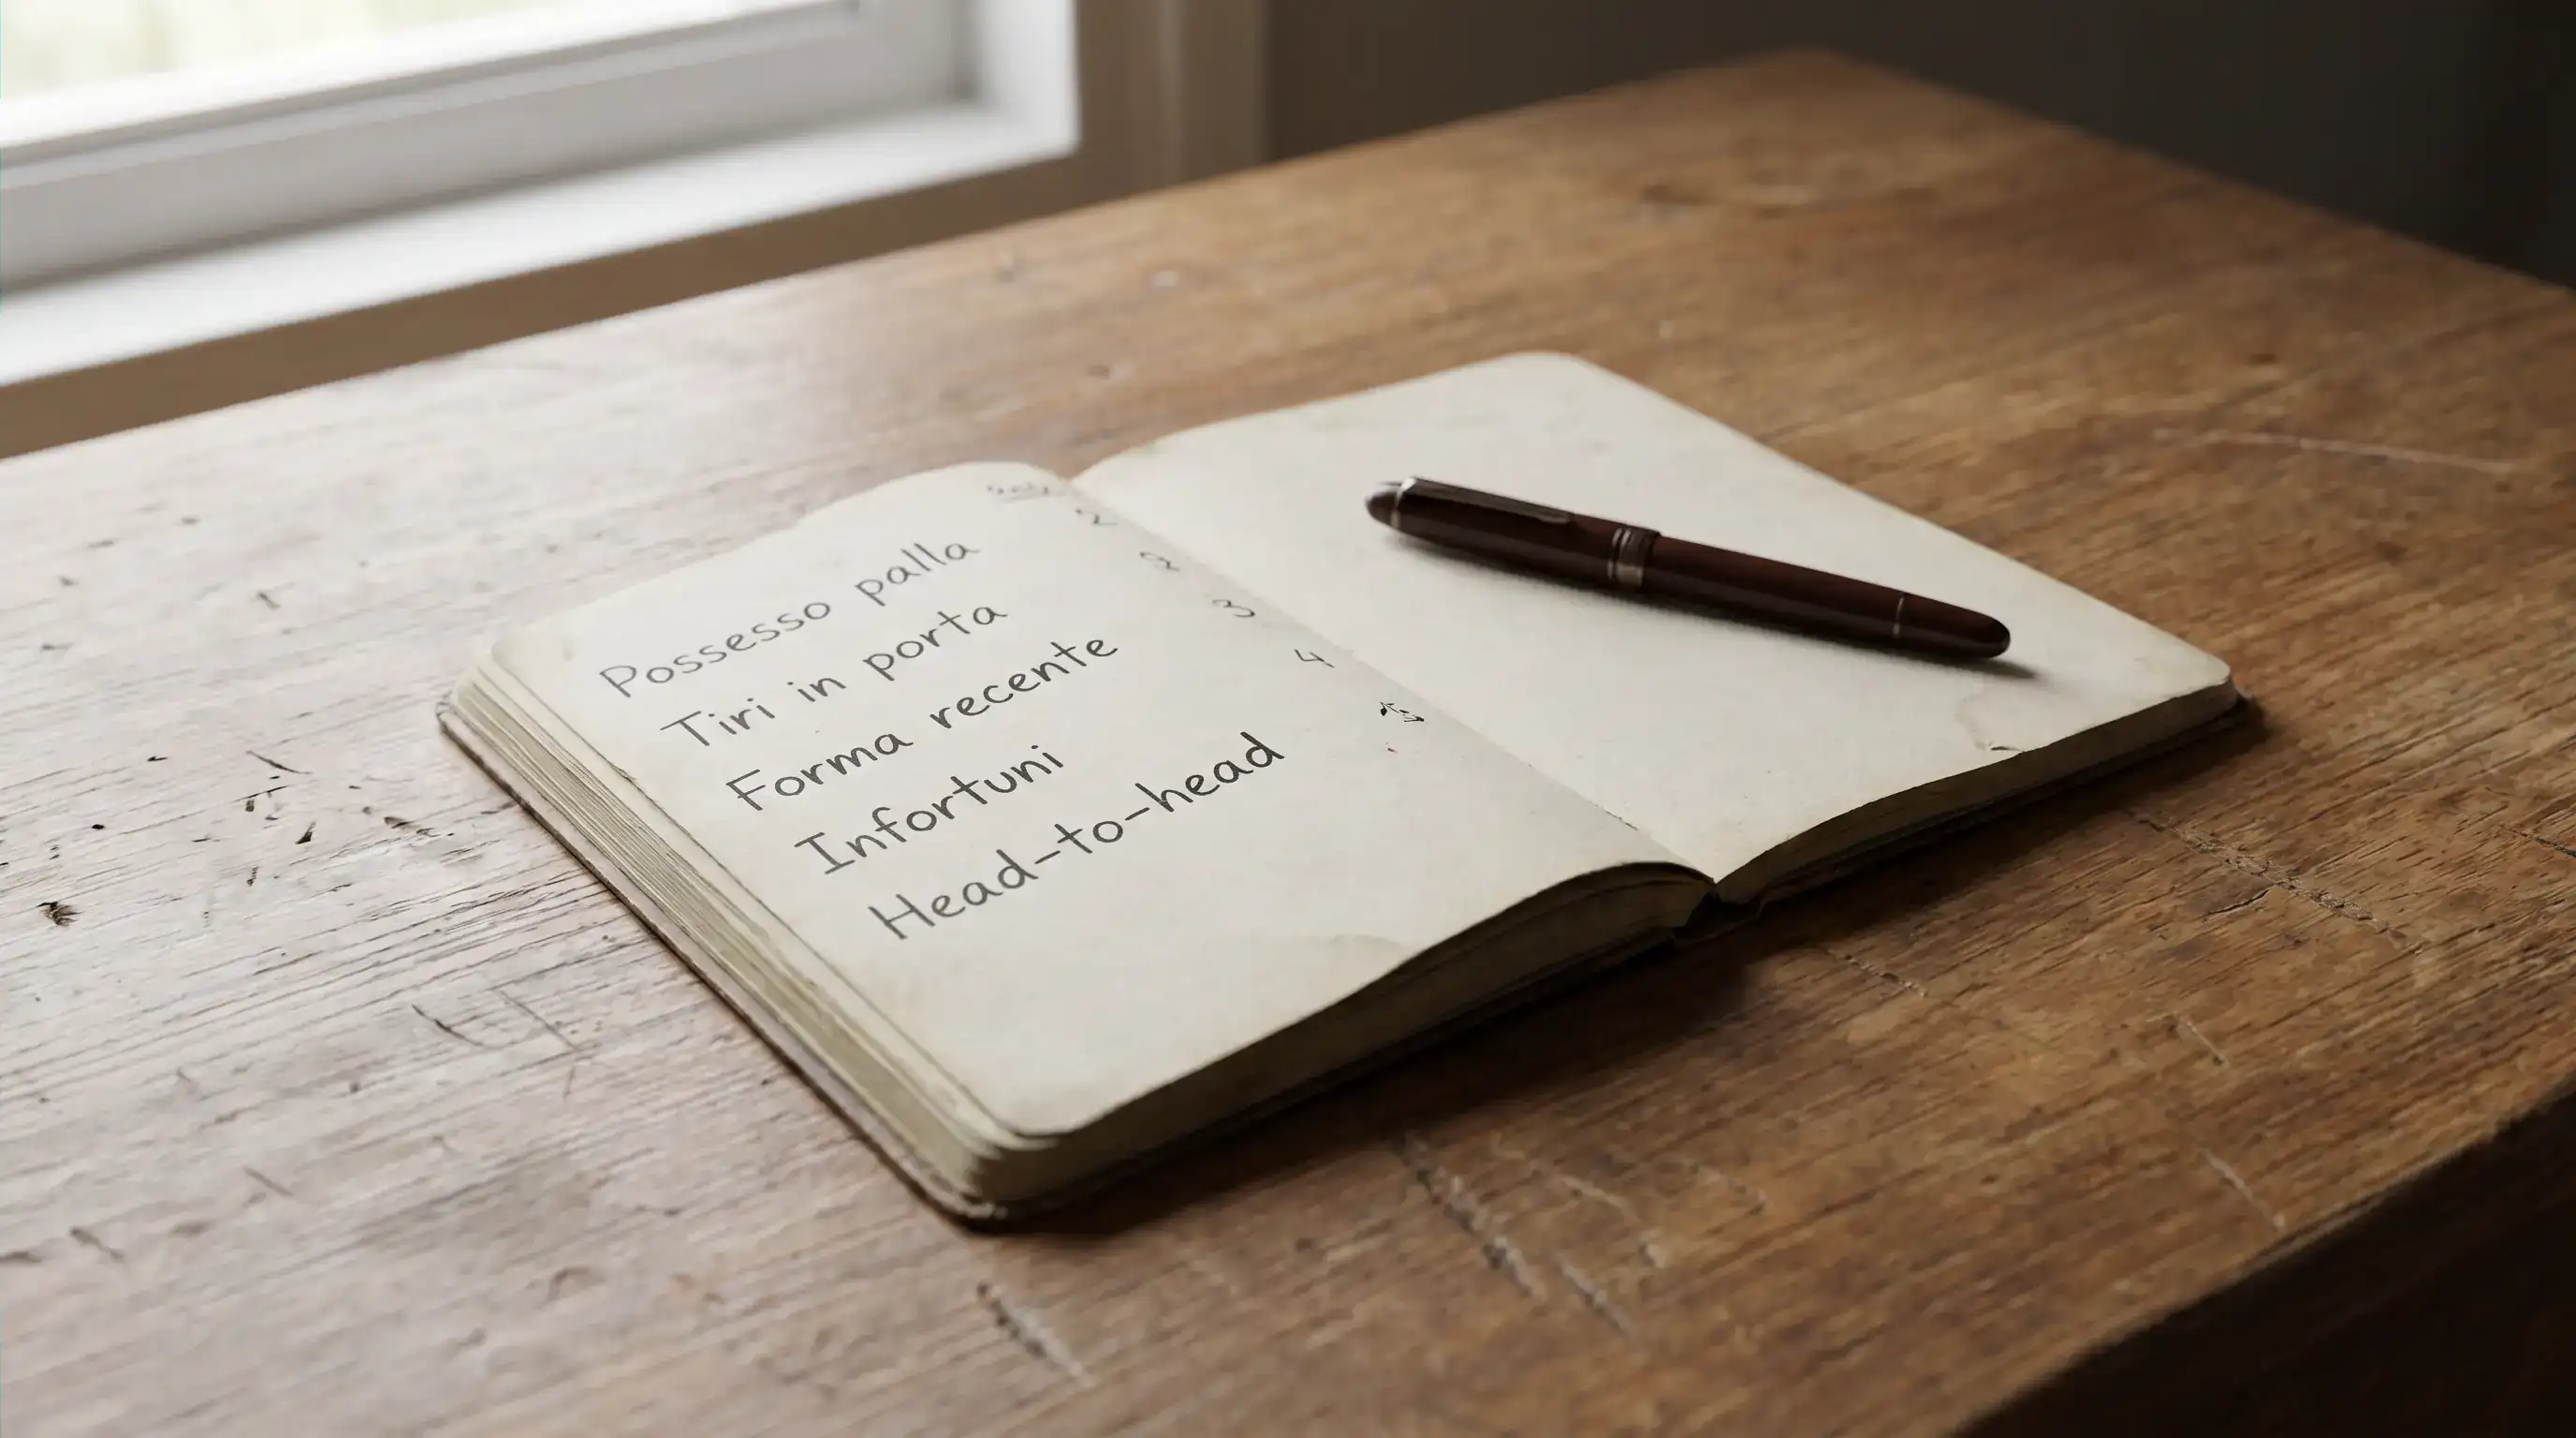 Possesso palla
Tiri in porta
Forma recente
Infortuni
Head-to-head
2
2
3
4